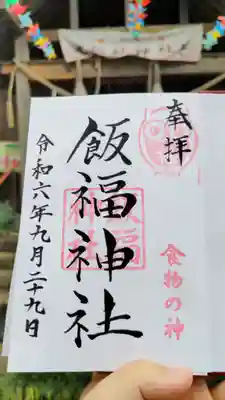 奉拝
飯福神社
食物の神
令和六年九月二十九日